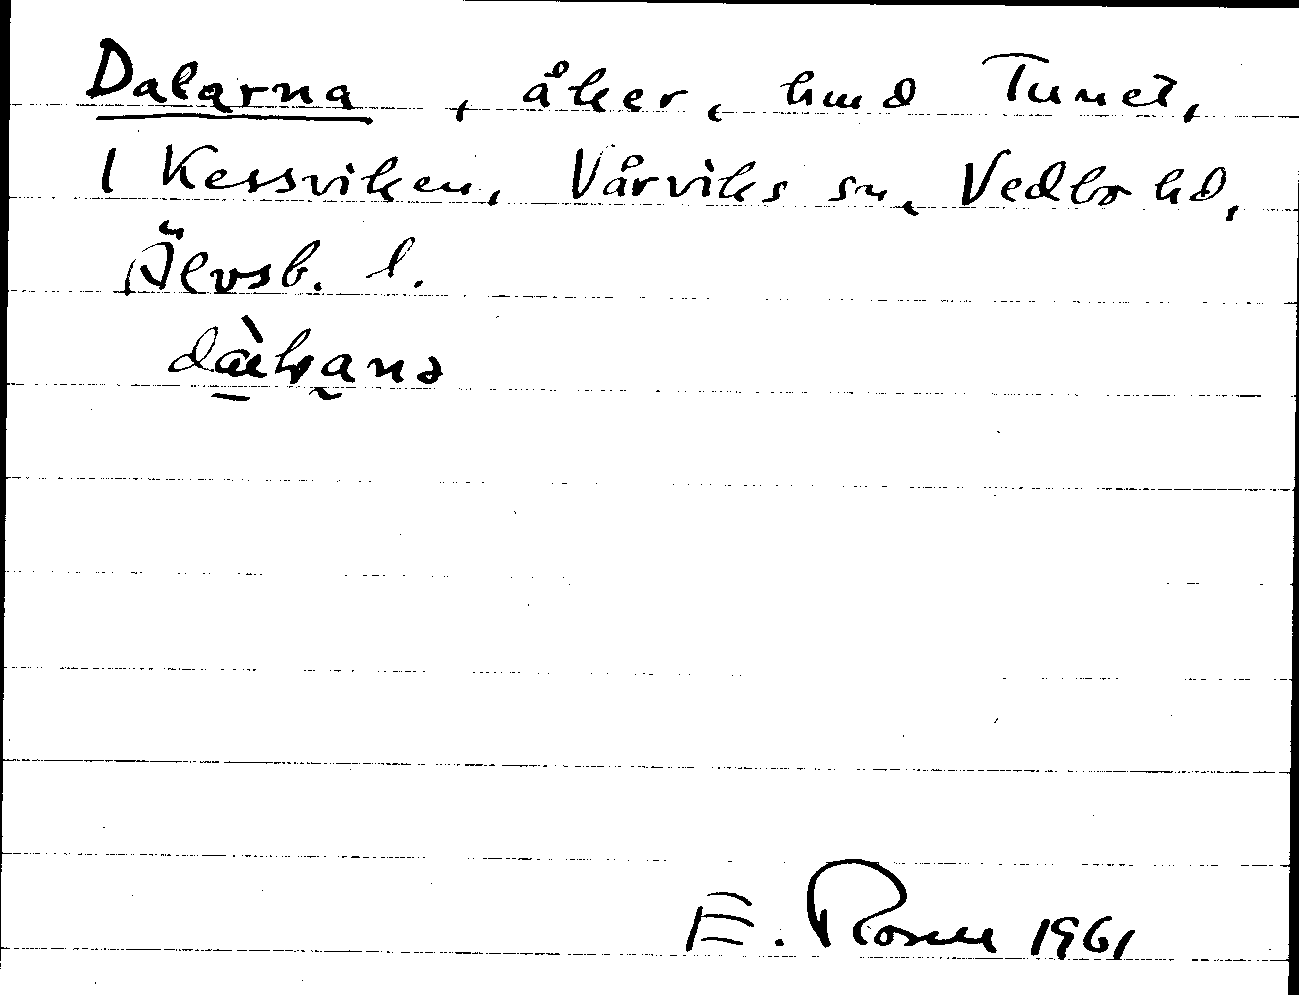 Dalarna, åker, hmd Tunet,
1 Kessviken, Vårviks sn, Vedbo hd,
Älvsb. l.
E. Rosell 1961